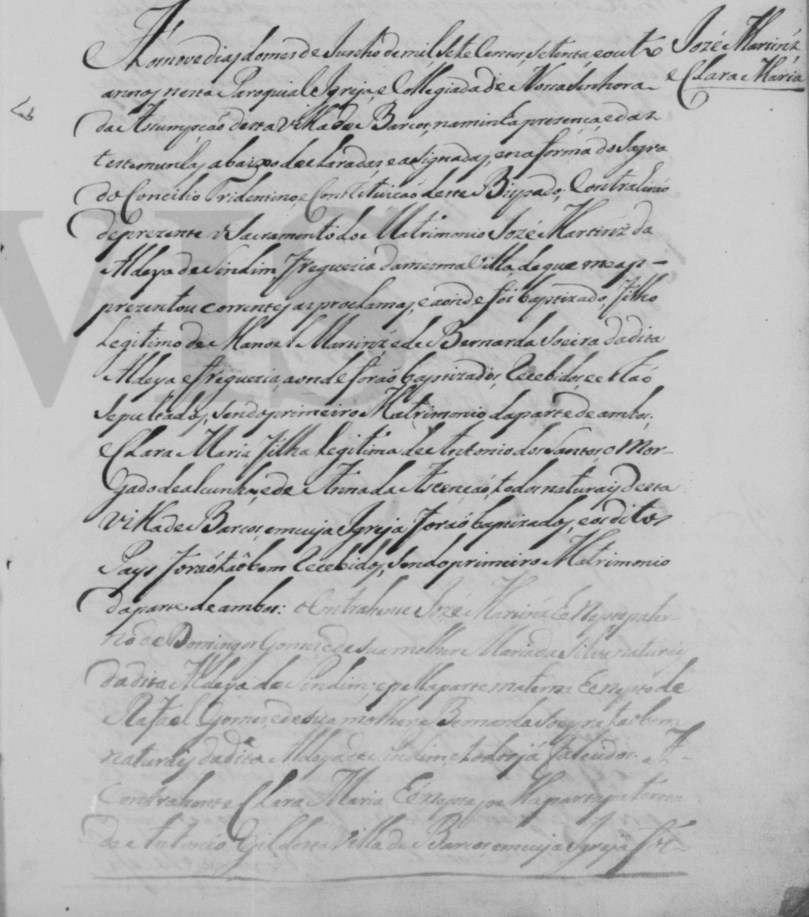 José Martinz
e Clara Maria
Aos nove dias do mes de Junho de mil sete centos setenta e outo
annos nesta Paroquial Igreja e Collegiada de Nossa Senhora
da Assumpcaõ desta villa de Barcos, na minha prezença e das
testemunhas abaixo declaradas e asignadas, e na forma do Sagra
do Concilio Tridentino e Constituicaõ deste Bispado, Contrahiraõ
de prezente o Sacramento do Matrimonio José Martinz da
Aldeya de Sindim, freguezia da mesma villa, de que me ap-
prezentou correntes as proclamas, e aonde foi baptizado, filho
Legitimo de Manoel Martinz e de Bernarda Soeira da dita
Aldeya e freguezia, aonde foraõ baptizados, Recebidos e estaõ
sepultados, sendo primeiro Matrimonio da parte de ambos.
e Clara Maria filha legitima de Antonio dos Santos o Mor-
gado de alcunha, e de Anna da Ascençaõ, todos naturais desta
villa de Barcos, em cuja Igreja foraõ baptizados, e os ditos
Pays foraõ taõbem Recebidos, sendo primeiro Matrimonio
da parte de ambos: o Contrahente José Martinz hé Neto pater-
no de Domingos Gomes e de sua molher Maria da Silva naturais
da dita Aldeya de Sindim, e pella parte materna hé neto de
Rafael Gomes, e de sua molher Bernarda Soeyra taõbem
naturais da dita Aldeya de Sindim, e todos já falecidos. A
Contrahente Clara Maria hé Neta pella parte paterna
de Antonio Gil desta villa de Barcos, em cuja Igreja foi
VIS